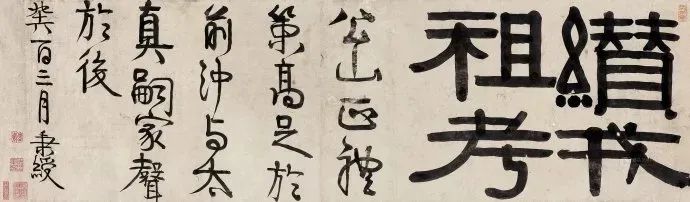 纘戎
祖考
公山正禮
策高足於
前沖与太
真嗣家聲
於後
癸酉三月秉綬